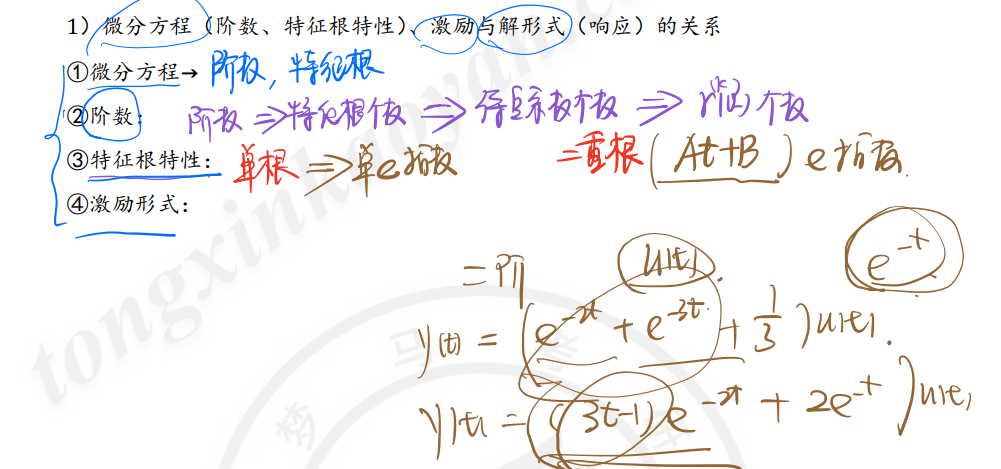 1）微分方程（阶数、特征根特性）、激励与解形式（响应）的关系
①微分方程→ 阶数，特征根
②阶数： 阶数 ⇒ 特征根个数 ⇒ 待定系数个数 ⇒ 个数
③特征根特性： 单根 ⇒ 单e指数 二重根 (At+B) e指数.
④激励形式：
二阶 u(t). e^{-t}
y(t) = (e^{-2t} + e^{-3t} + 1/3) u(t).
y(t) = ((3t-1) e^{-2t} + 2e^{-t}) u(t)
tongxinkaoyan.com